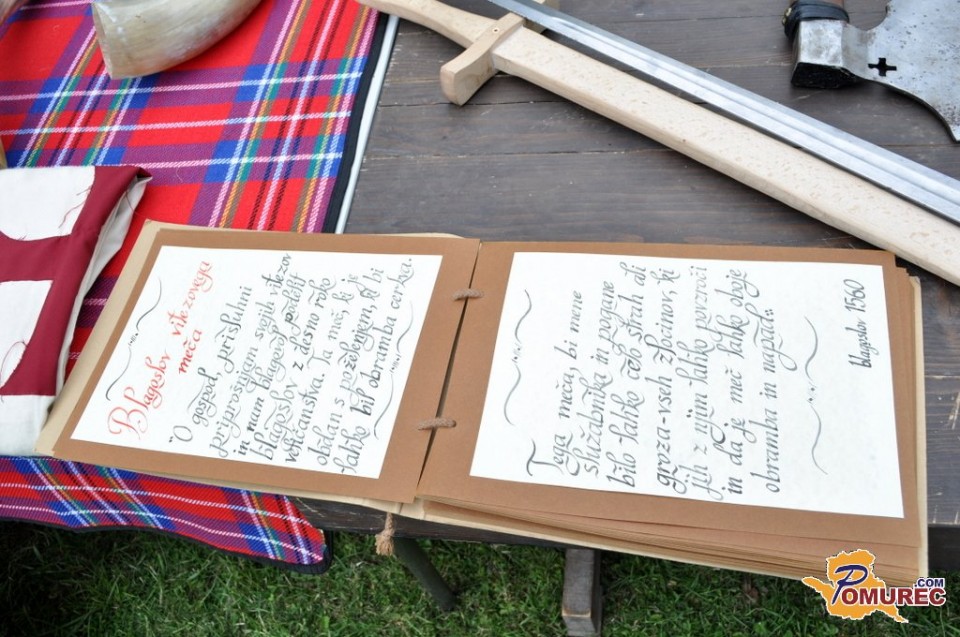 Blagoslov vitezovega
meča
"O gospod, prisluhni
priprošnjam svojih vitezov
in nam blagovoli podelit
blagoslov z desno roko
veličanstva. Ta meč, ki je
obdan s poželenjem, ki bi
lahko bil obramba cerkva.
Tega meča, bi mene
služabnika in pogane
bilo lahko celo strah ali
groza-vseh zločinov, ki
jih z njim lahko povzroči
in da je meč lahko oboje
obramba in napad«
blagoslov 1560
POMUREC.COM